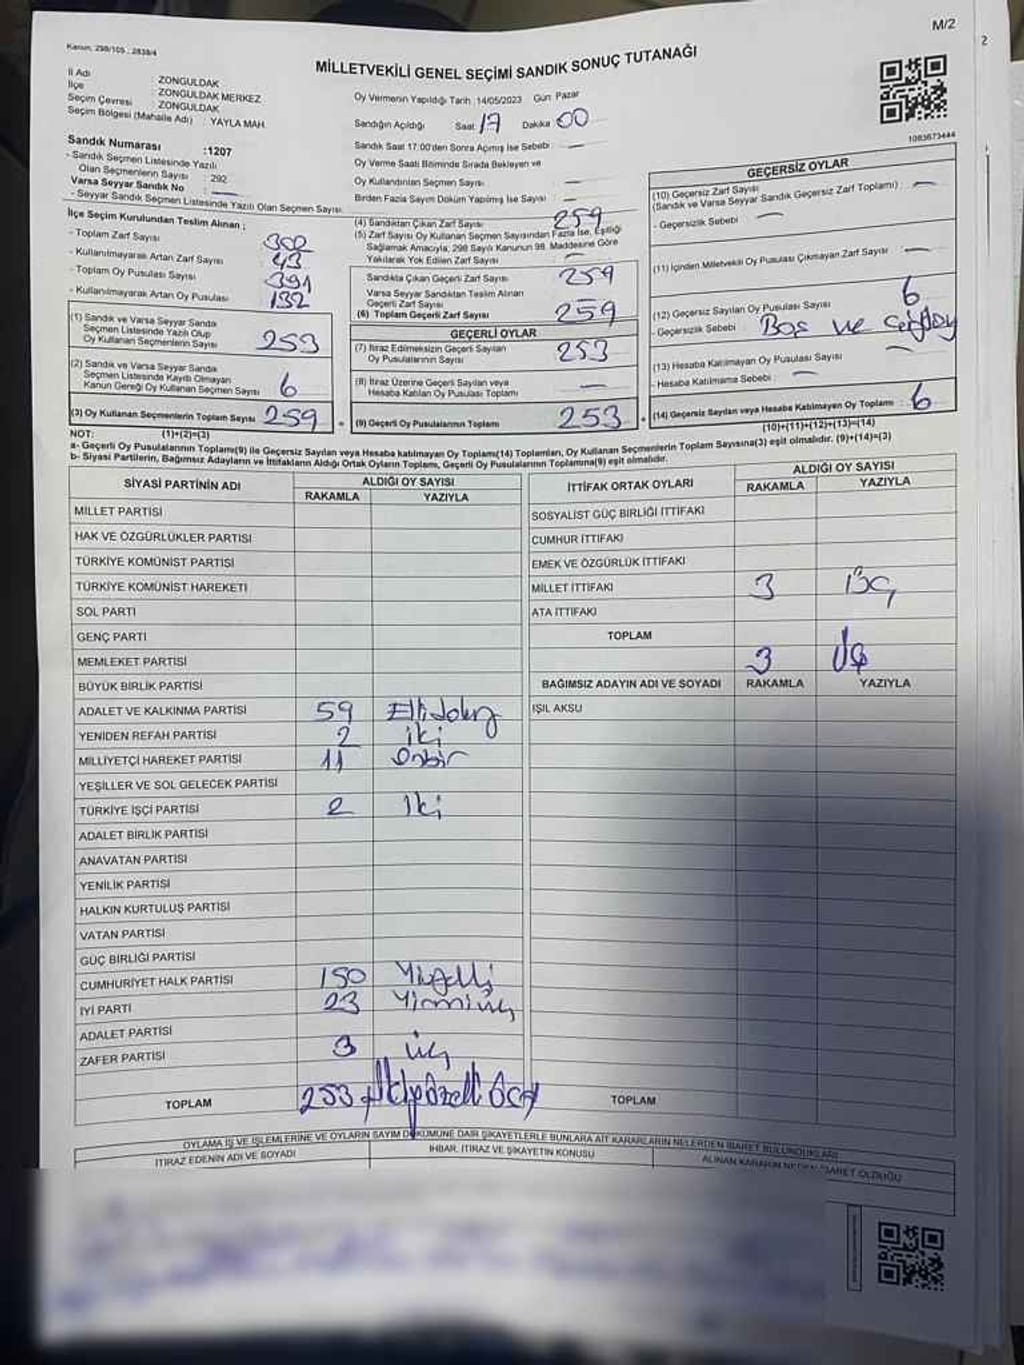 M/2
2
Kanun, 298/105 ; 2839/4
MİLLETVEKİLİ GENEL SEÇİMİ SANDIK SONUÇ TUTANAĞI
İl Adı : ZONGULDAK
İlçe : ZONGULDAK MERKEZ
Seçim Çevresi : ZONGULDAK
Seçim Bölgesi (Mahalle Adı) : YAYLA MAH.
Sandık Numarası :1207
- Sandık Seçmen Listesinde Yazılı
Olan Seçmenlerin Sayısı : 292
Varsa Seyyar Sandık No : —
- Seyyar Sandık Seçmen Listesinde Yazılı Olan Seçmen Sayısı:
Oy Vermenin Yapıldığı Tarih :14/05/2023 Gün: Pazar
Sandığın Açıldığı Saat: 17 Dakika 00
Sandık Saat 17.00'den Sonra Açılmış İse Sebebi : —
Oy Verme Saati Bitiminde Sırada Bekleyen ve
Oy Kullandırılan Seçmen Sayısı : —
Birden Fazla Sayım Döküm Yapılmış İse Sayısı : —
1083673444
İlçe Seçim Kurulundan Teslim Alınan ;
- Toplam Zarf Sayısı : 302
- Kullanılmayarak Artan Zarf Sayısı : 43
- Toplam Oy Pusulası Sayısı : 391
- Kullanılmayarak Artan Oy Pusulası : 132
(1) Sandık ve Varsa Seyyar Sandık
Seçmen Listesinde Yazılı Olup
Oy Kullanan Seçmenlerin Sayısı : 253
(2) Sandık ve Varsa Seyyar Sandık
Seçmen Listesinde Kayıtlı Olmayan
Kanun Gereği Oy Kullanan Seçmen Sayısı : 6
(3) Oy Kullanan Seçmenlerin Toplam Sayısı : 259
(1)+(2)=(3)
(4) Sandıktan Çıkan Zarf Sayısı : 259
(5) Zarf Sayısı Oy Kullanan Seçmen Sayısından Fazla İse, Eşitliği
Sağlamak Amacıyla, 298 Sayılı Kanunun 98. Maddesine Göre
Yakılarak Yok Edilen Zarf Sayısı : —
Sandıkta Çıkan Geçerli Zarf Sayısı : 259
Varsa Seyyar Sandıktan Teslim Alınan
Geçerli Zarf Sayısı :
(6) Toplam Geçerli Zarf Sayısı : 259
GEÇERLİ OYLAR
(7) İtiraz Edilmeksizin Geçerli Sayılan
Oy Pusulalarının Sayısı : 253
(8) İtiraz Üzerine Geçerli Sayılan veya
Hesaba Katılan Oy Pusulası Toplamı : —
(9) Geçerli Oy Pusulalarının Toplamı : 253
GEÇERSİZ OYLAR
(10) Geçersiz Zarf Sayısı
(Sandık ve Varsa Seyyar Sandık Geçersiz Zarf Toplamı) : —
- Geçersizlik Sebebi : —
(11) İçinden Milletvekili Oy Pusulası Çıkmayan Zarf Sayısı : —
(12) Geçersiz Sayılan Oy Pusulası Sayısı : 6
- Geçersizlik Sebebi : Boş ve
(13) Hesaba Katılmayan Oy Pusulası Sayısı : —
- Hesaba Katılmama Sebebi : —
(14) Geçersiz Sayılan veya Hesaba Katılmayan Oy Toplamı : 6
(10)+(11)+(12)+(13)=(14)
NOT:
a- Geçerli Oy Pusulalarının Toplamı(9) ile Geçersiz Sayılan veya Hesaba katılmayan Oy Toplamı(14) Toplamları, Oy Kullanan Seçmenlerin Toplam Sayısına(3) eşit olmalıdır. (9)+(14)=(3)
b- Siyasi Partilerin, Bağımsız Adayların ve İttifakların Aldığı Ortak Oyların Toplamı, Geçerli Oy Pusulalarının Toplamına(9) eşit olmalıdır.
SİYASİ PARTİNİN ADI ALDIĞI OY SAYISI
RAKAMLA YAZIYLA
MİLLET PARTİSİ
HAK VE ÖZGÜRLÜKLER PARTİSİ
TÜRKİYE KOMÜNİST PARTİSİ
TÜRKİYE KOMÜNİST HAREKETİ
SOL PARTİ
GENÇ PARTİ
MEMLEKET PARTİSİ
BÜYÜK BİRLİK PARTİSİ
ADALET VE KALKINMA PARTİSİ 59 Ellidokuz
YENİDEN REFAH PARTİSİ 2 iki
MİLLİYETÇİ HAREKET PARTİSİ 11 Onbir
YEŞİLLER VE SOL GELECEK PARTİSİ
TÜRKİYE İŞÇİ PARTİSİ 2 iki
ADALET BİRLİK PARTİSİ
ANAVATAN PARTİSİ
YENİLİK PARTİSİ
HALKIN KURTULUŞ PARTİSİ
VATAN PARTİSİ
GÜÇ BİRLİĞİ PARTİSİ
CUMHURİYET HALK PARTİSİ 150 Yüzelli
İYİ PARTİ 23 Yirmiüç
ADALET PARTİSİ
ZAFER PARTİSİ 3 üç
TOPLAM 253
İTTİFAK ORTAK OYLARI ALDIĞI OY SAYISI
RAKAMLA YAZIYLA
SOSYALİST GÜÇ BİRLİĞİ İTTİFAKI
CUMHUR İTTİFAKI
EMEK VE ÖZGÜRLÜK İTTİFAKI
MİLLET İTTİFAKI 3 üç
ATA İTTİFAKI
TOPLAM 3 üç
BAĞIMSIZ ADAYIN ADI VE SOYADI RAKAMLA YAZIYLA
IŞIL AKSU
TOPLAM
OYLAMA İŞ VE İŞLEMLERİNE VE OYLARIN SAYIM DÖKÜMÜNE DAİR ŞİKAYETLERLE BUNLARA AİT KARARLARIN NELERDEN İBARET BULUNDUKLARI
İTİRAZ EDENİN ADI VE SOYADI İHBAR, İTİRAZ VE ŞİKAYETİN KONUSU ALINAN KARARIN NEDEN İBARET OLDUĞU